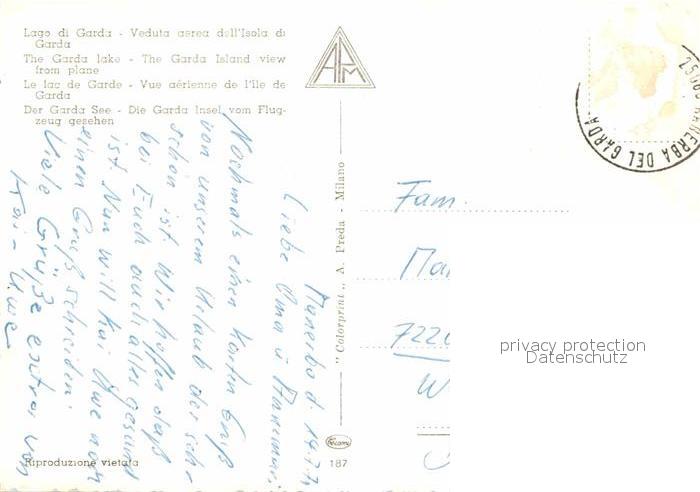 Lago di Garda - Veduta aerea dell'Isola di
Garda
The Garda lake - The Garda Island view
from plane
Le lac de Garde - Vue aérienne de l'île de
Garda
Der Garda See - Die Garda Insel vom Flug-
zeug gesehen
APM
Manerba d. 14.7.7
Liebe Oma u.
Nochmals einen Karten Gruß
von unserem Urlaub der sehr
schön ist. Wir hoffen daß
bei Euch auch alles gesund
ist. Nun will Kai Uwe noch
einen Gruß schreiben.
Viele Grüße extra von
Kai-Uwe
"Colorprint" A. Preda - Milano
Fam.
Ma
722
W
MANERBA DEL GARDA
privacy protection
Datenschutz
Riproduzione vietata
187